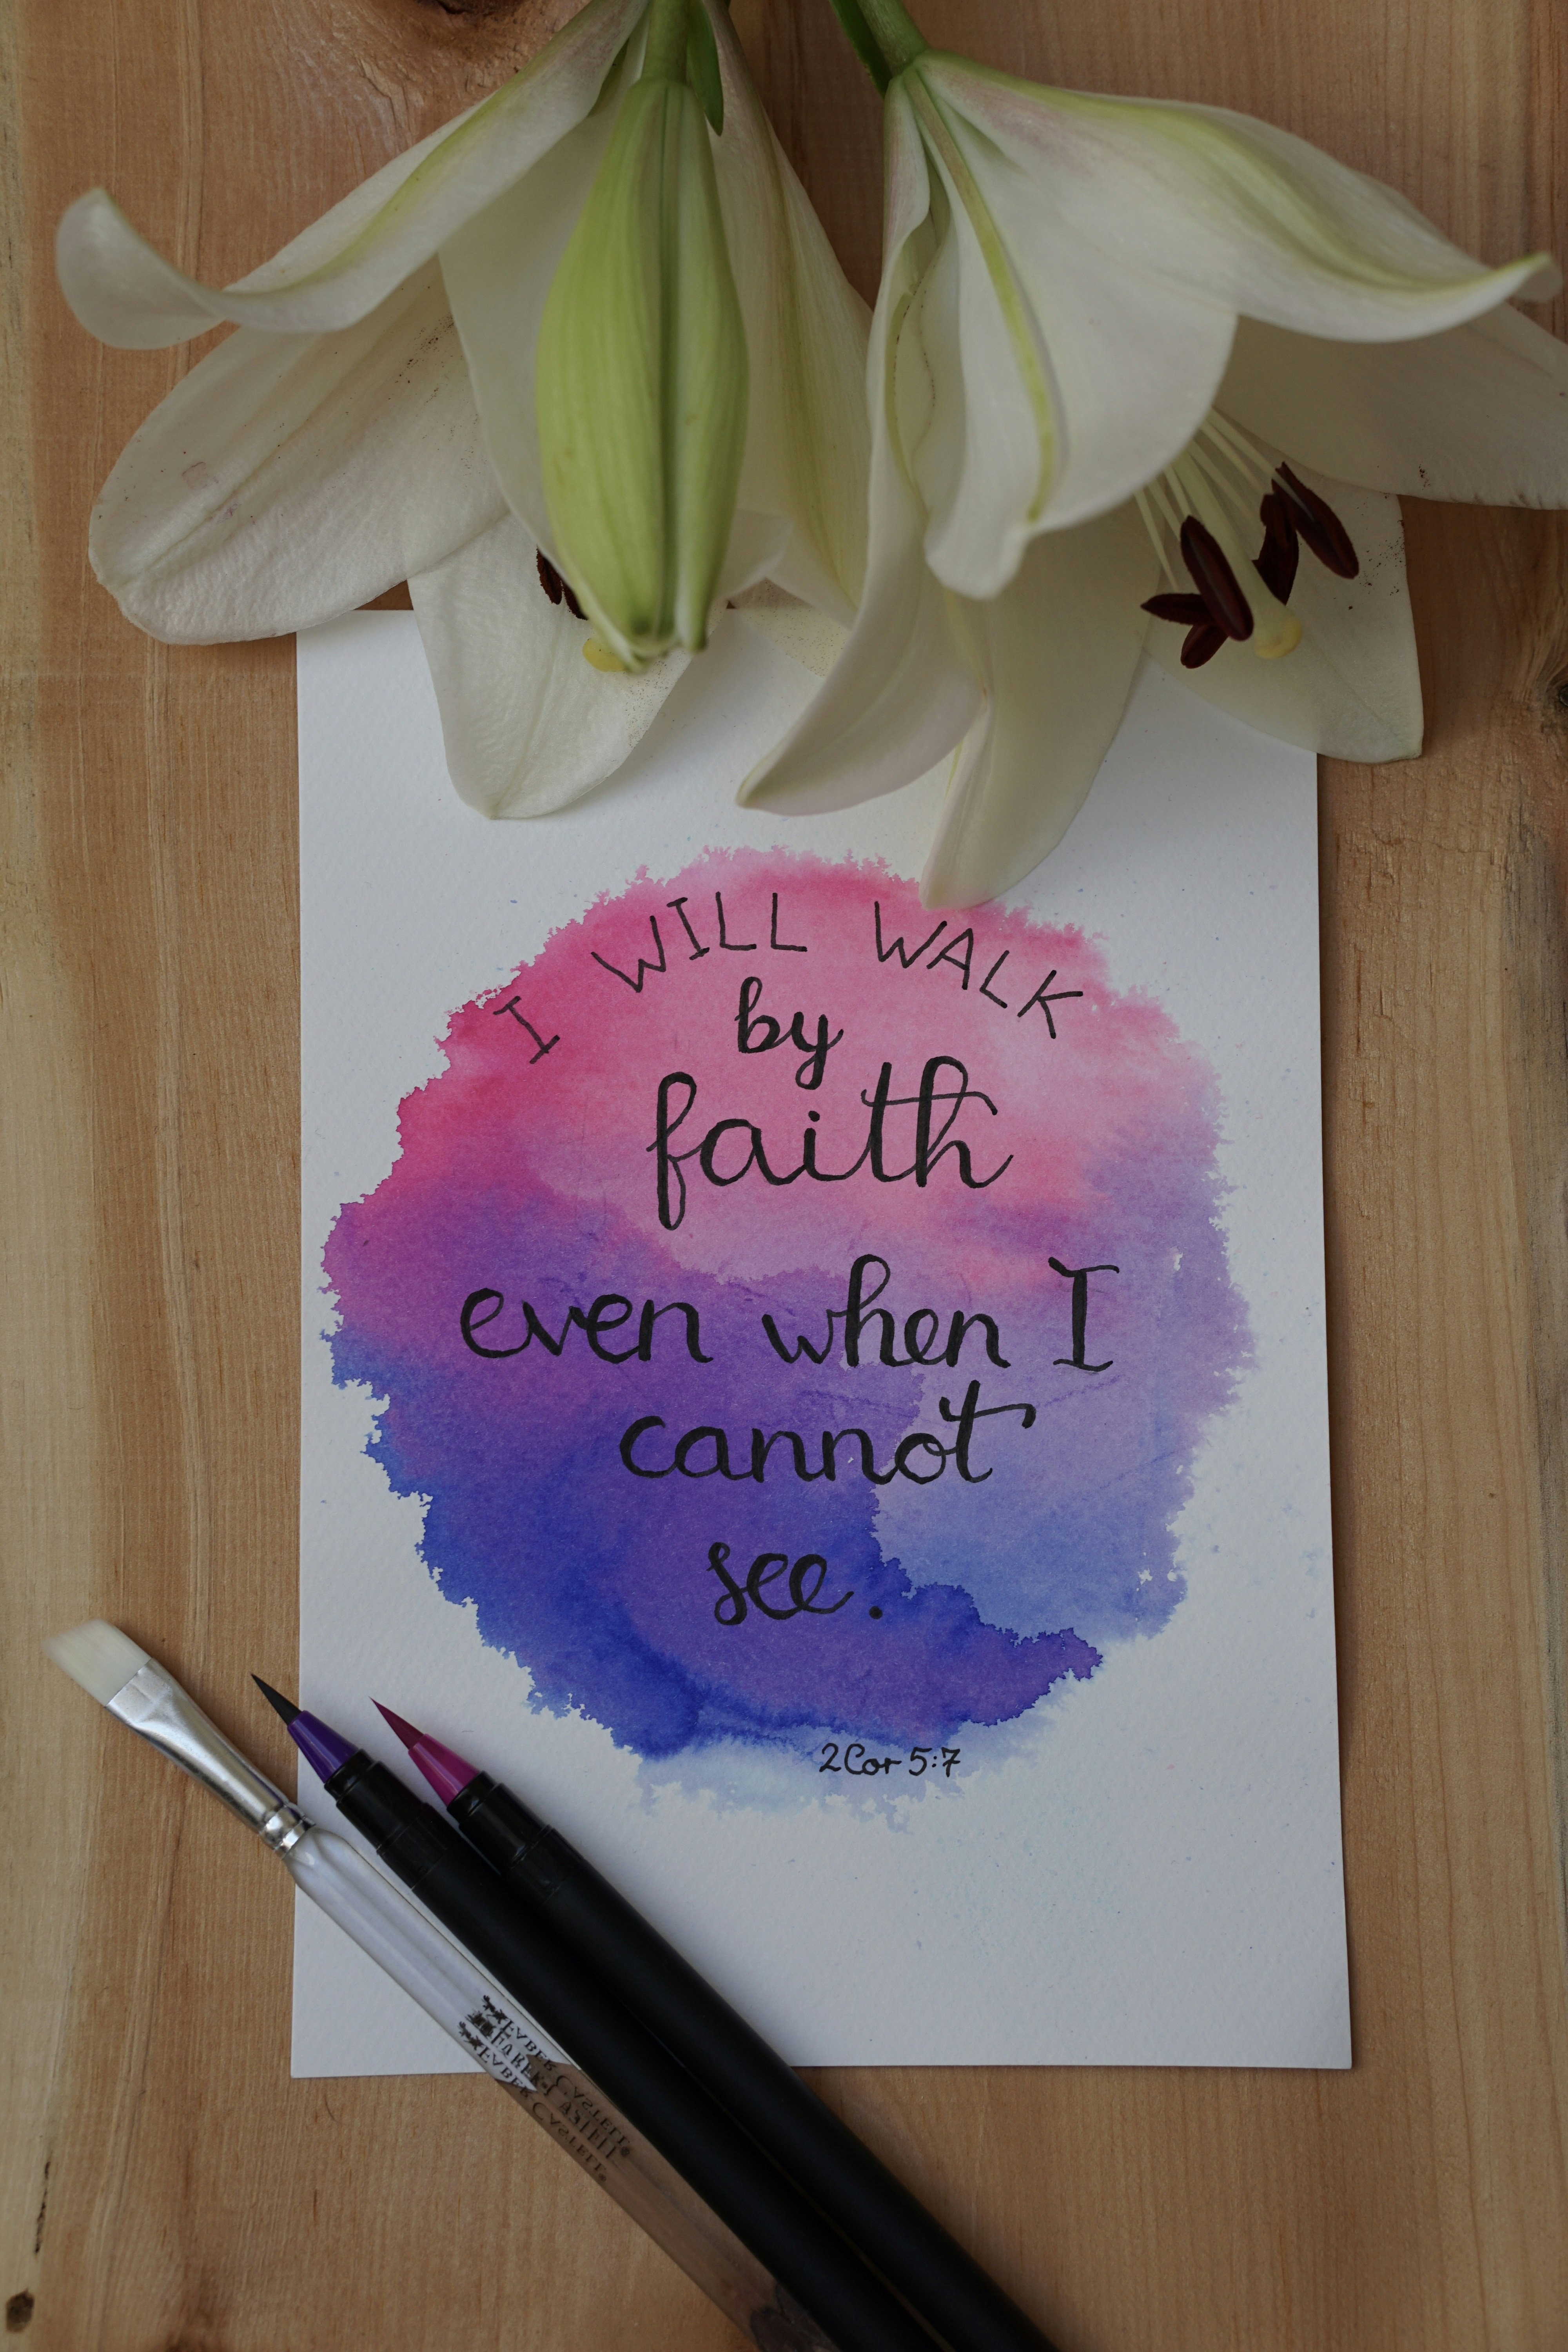 I WILL WALK
by
faith
even when I
cannot
see.
2Cor 5:7